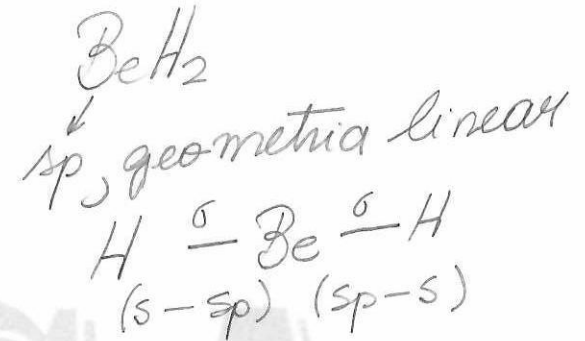 BeH₂
sp, geometria linear
σ σ
H — Be — H
(s - sp) (sp - s)